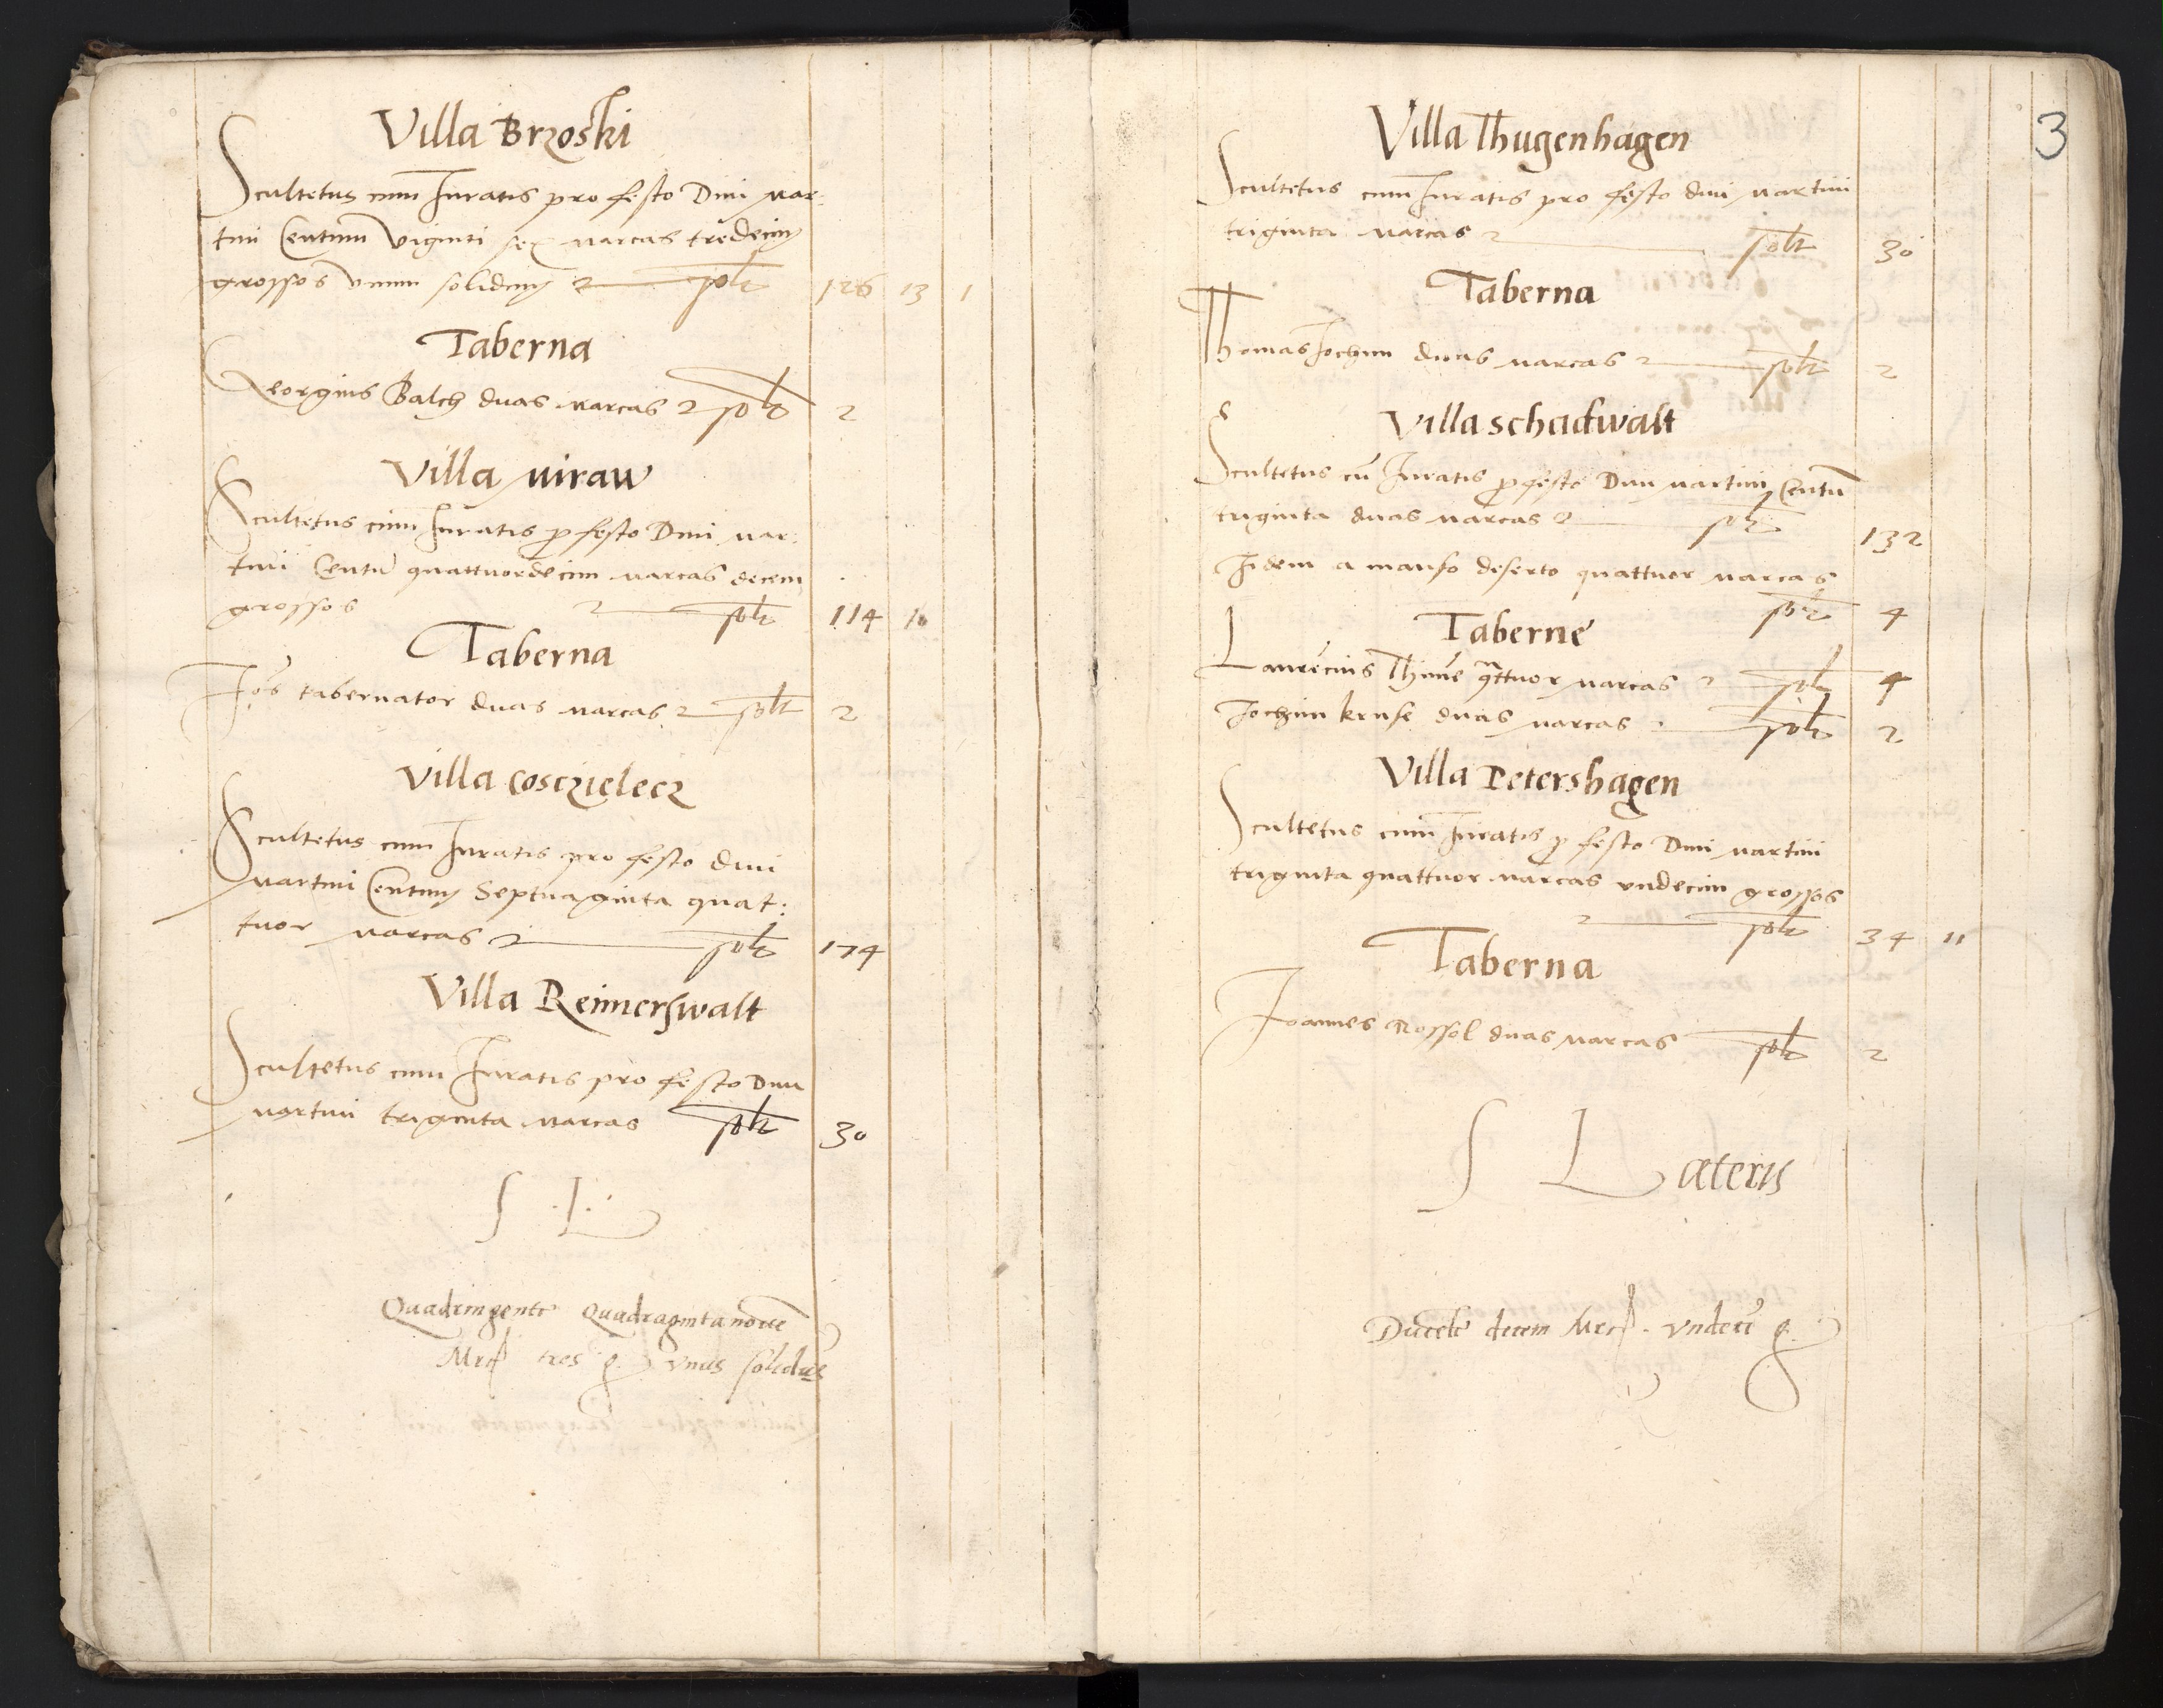 Villa Brzoski
Scultetus cum Juratis pro festo Divi Mar:
tini Centum viginti sex marcas tredecim
grossos unum solidum solt 126 13 1
Taberna
Georgius Balch duas marcas solt 2
Villa Miraw
Scultetus cum Juratis p festo Divi Mar:
tini Centu quattuordecim marcas decem
grossos solt 114 10
Taberna
Jos tabernator duas marcas solt 2
Villa Cosczielecz
Scultetus cum Juratis pro festo divi
Martini Centum Septuaginta quat:
tuor marcas solt 174
Villa Reimerswalt
Scultetus cum Juratis pro festo Divi
Martini triginta marcas solt 30
S L
Quadringente Quadraginta novem
Mrc tres g unus solidus
3
Villa Thugenhagen
Scultetus cum Juratis pro festo divi Martini
triginta marcas solt 30
Taberna
Thomas Jochim duas marcas solt 2
Villa Schadwalt
Scultetus cu Juratis p festo Divi Martini Centu
triginta duas marcas solt 132
Jidem a manso deserto quattuor marcas
solt 4
Taberne
Laurecius Thime qttuor marcas solt 4
Jochim kruse duas marcas solt 2
Villa Petershagen
Scultetus cum Juratis p festo Divi Martini
triginta quattuor marcas undecim grossos
solt 34 11
Taberna
Joannes Rossol duas marcas solt 2
S Lateris
Ducete decem Mrc. undeci g